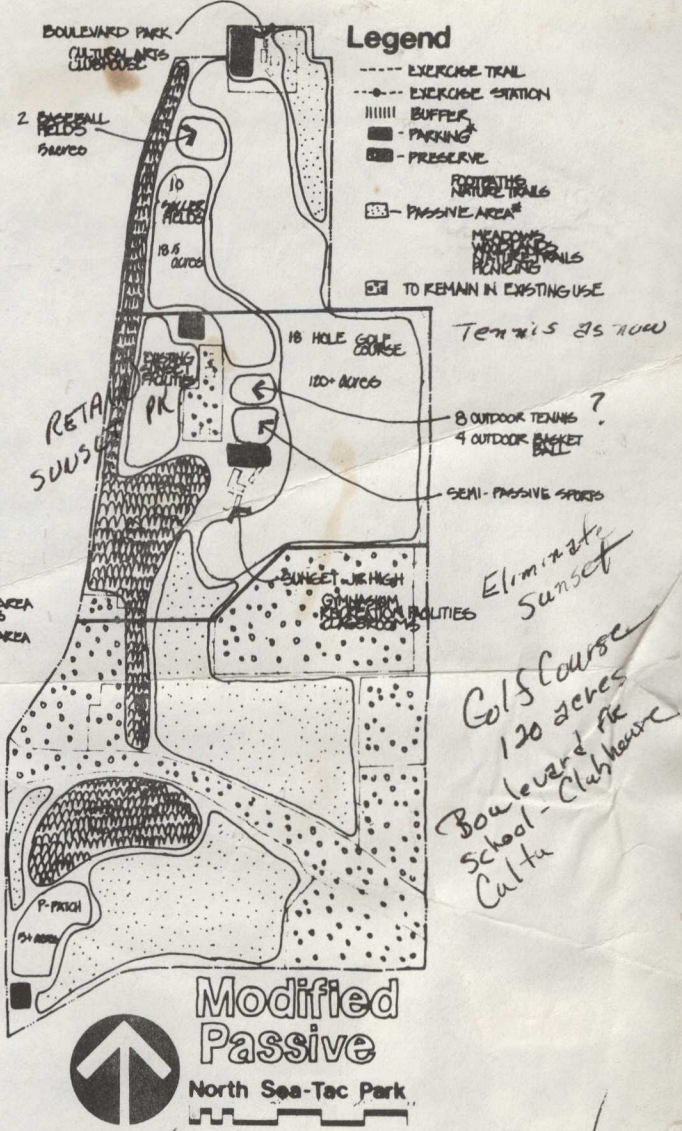 BOULEVARD PARK
CULTURAL ARTS
CLUBHOUSE
2 BASEBALL
FIELDS
5 acres
10
SOCCER
FIELDS
18.5
acres
Legend
EXERCISE TRAIL
EXERCISE STATION
BUFFER
PARKING*
PRESERVE
FOOTPATHS
NATURE TRAILS
PASSIVE AREA*
MEADOWS
WOODLANDS
NATURE TRAILS
PICNICING
TO REMAIN IN EXISTING USE
Tennis as now
EXISTING
SUNSET
FACILITIES
PK
RETAIN
SUNSET
18 HOLE GOLF
COURSE
120+ ACRES
8 OUTDOOR TENNIS ?
4 OUTDOOR BASKET
BALL
SEMI-PASSIVE SPORTS
SUNSET JR HIGH
GYMNASIUM
RECREATION FACILITIES
CLASSROOMS
AREA
AREA
Eliminate
Sunset
Golf Course
120 acres
Boulevard Pk
School - Clubhouse
Cultu
P-PATCH
5+ acres
Modified
Passive
North Sea-Tac Park